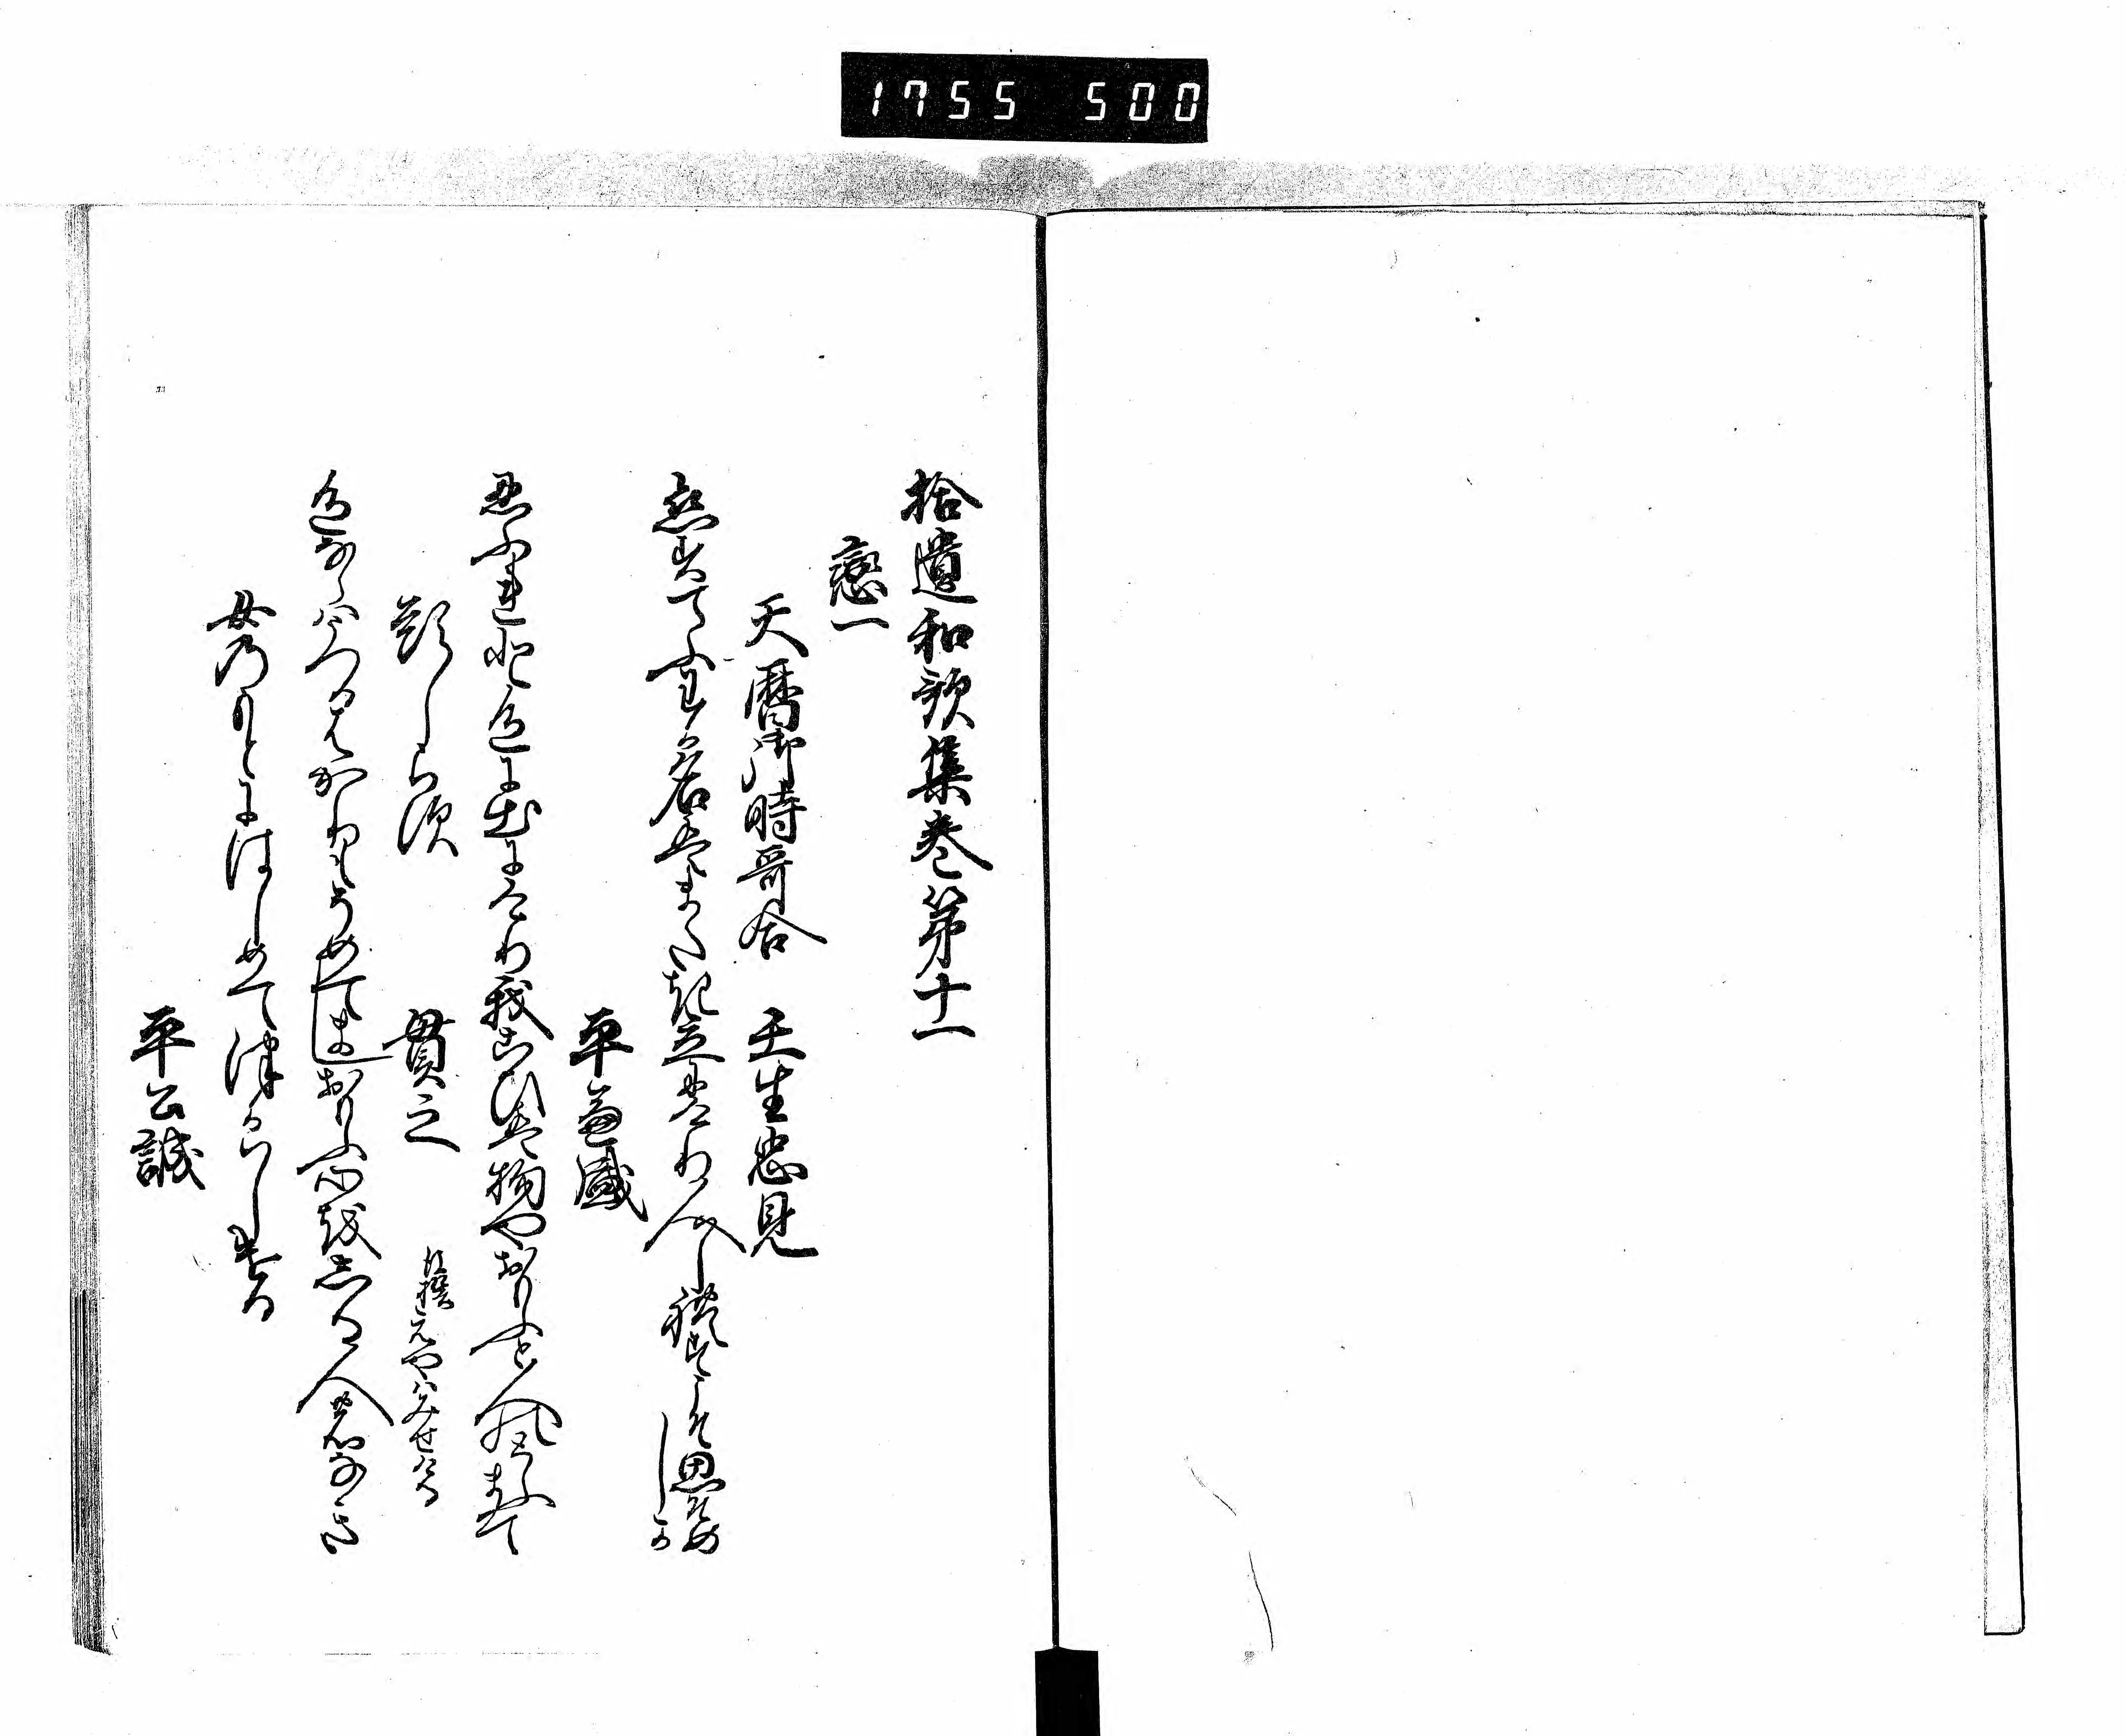 1755 500
拾遺和歌集巻第十一
恋一
天暦御時哥合　壬生忠見
恋すてふわか名はまたき立にけり人しれすこそ思そめしか
平兼盛
忍ふれと色にいてにけり我こひは物やおもふと人のとふまて
題しらす　貫之
色ならはうつるはかりもそめてましおもふ心をしる人のなき
女のもとにはしめてつかはしける
平公誠